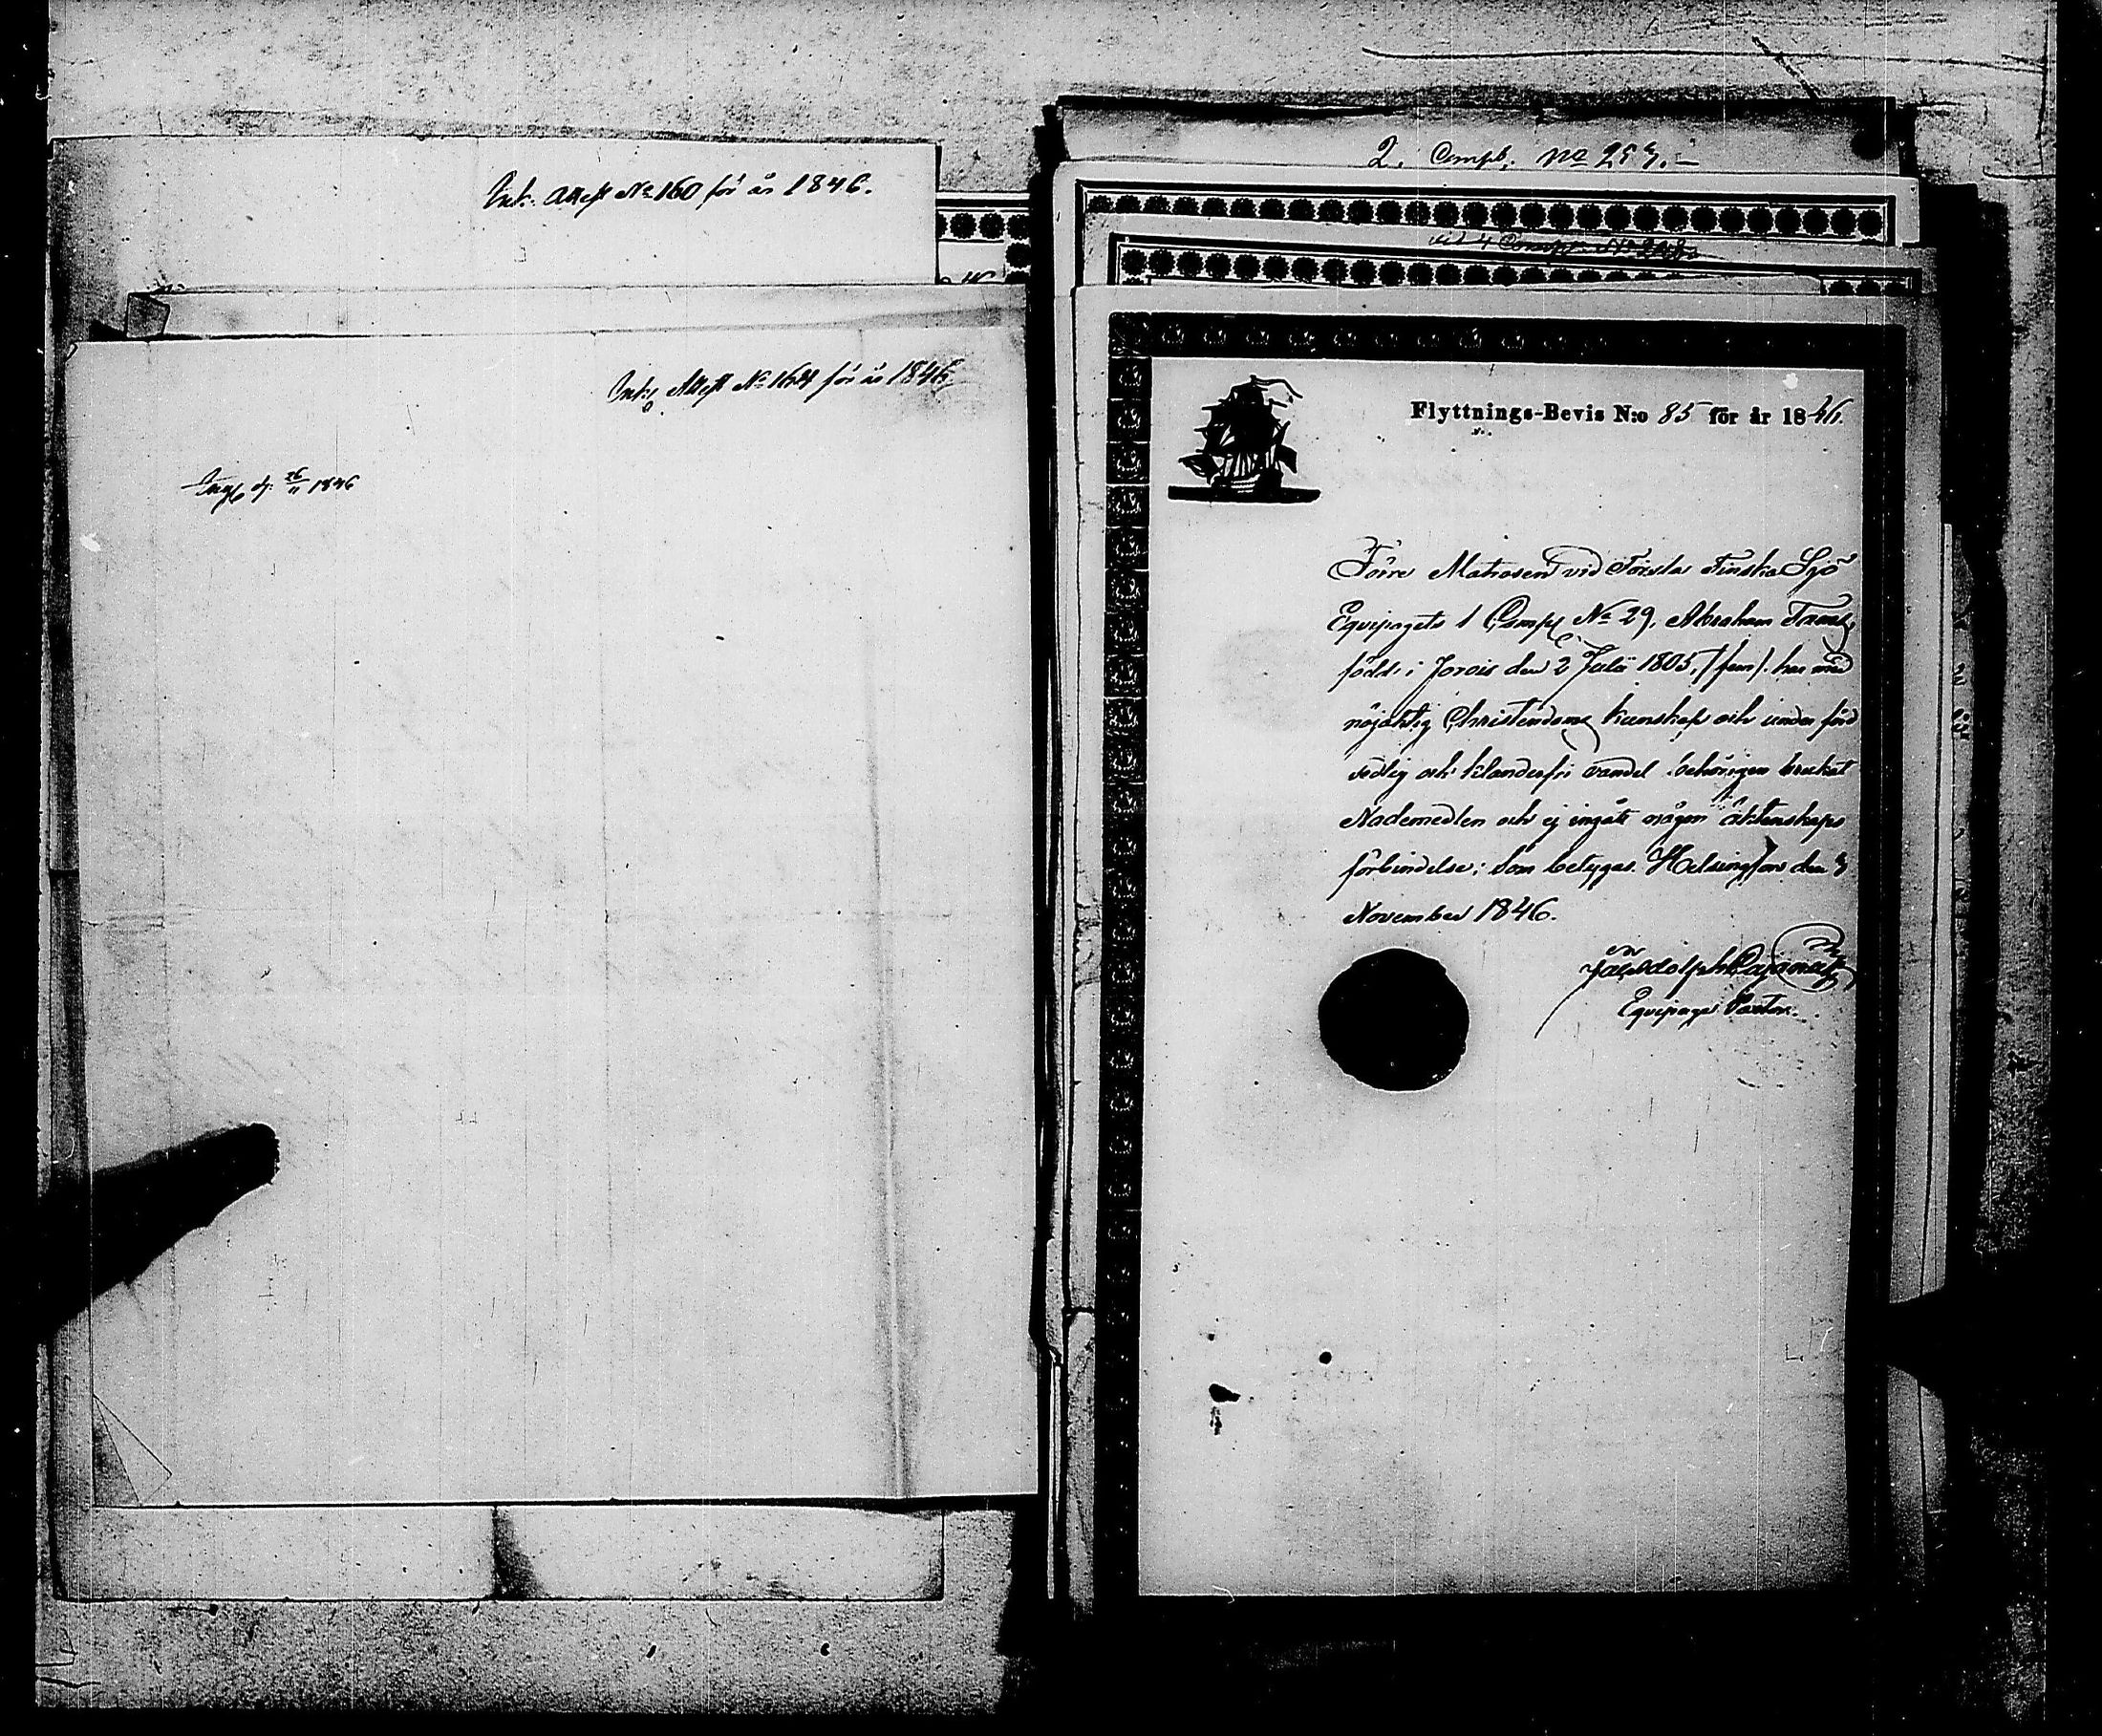 Ink. Attest No 160 för år 1846.
Ink. Attest No 164 för år 1846.
d. 26/11 1846
2. Comp. No
vid 4 Comp. No
Flyttnings-Bevis N:o 85 för år 1846.
Förre Matrosen vid Första Finska Sjö
Equipagets 1 Comp No 29, Abraham
född i Jorois den 2 Julii 1805, /fem/. har med
nöjaktig Christendoms kunskap och under förd
sedlig och klanderfri vandel behörigen brukat
Nademedlen och ej ingått någon äktenskaps
förbindelse; som betygas. Helsingfors den 3
November 1846.
Equipage Pastor.